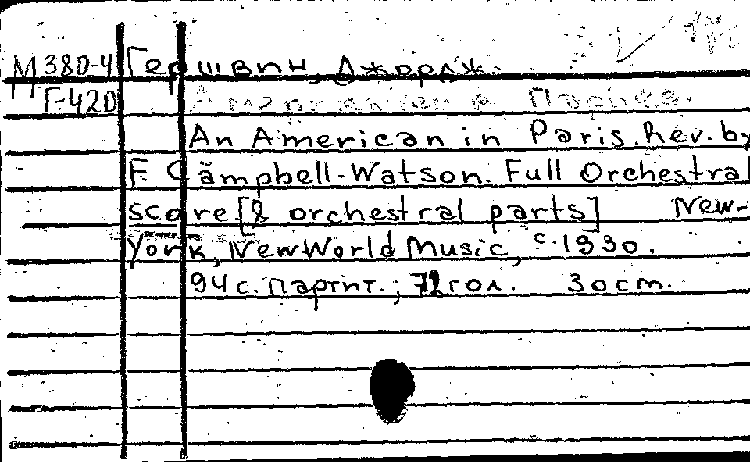 М380-4 Гершвин, Джордж.
Г-420 Американец в Париже.
An American in Paris. Rev. by
F. Campbell-Watson. Full Orchestral
score [& orchestral parts] New-
York, New World Music, c. 1930.
94 с. партит.; 72 гол. 30 cm.